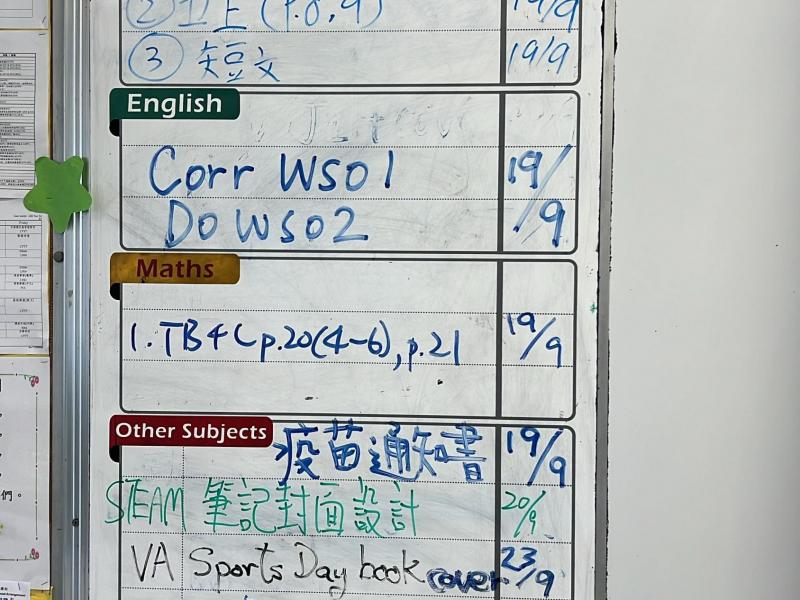 ② 工上 (p.8, 9) 19/9
③ 短文 19/9
English
Corr WS01 19/9
Do WS02
Maths
1. TB4C p.20(4-6), p.21 19/9
Other Subjects 疫苗通知書 19/9
STEAM 筆記封面設計 20/9
VA Sports Day book cover 23/9
們。